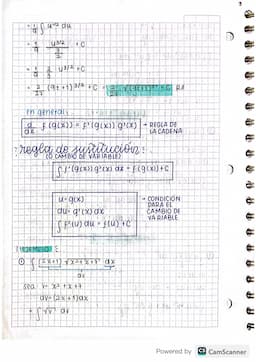 = 1/9 ∫ u^1/2 du
= 1/9 u^3/2 / 3/2 + C
= 1/9 · 2/3 u^3/2 + C
= 2/27 (9t+1)^3/2 + C = + C RA
en general:
d/dx f(g(x)) = f'(g(x)) g'(x) → REGLA DE LA CADENA
regla de sustitución:
(O CAMBIO DE VARIABLE)
∫ f'(g(x)) g'(x) dx = f(g(x)) + C
u = g(x)
du = g'(x) dx
∫ f'(u) du = f(u) + C
→ CONDICIÓN PARA EL CAMBIO DE VARIABLE
① ∫ (2x+1) √x²+x+7 dx
dv
sea v = x² + x + 7
dv = (2x+1) dx
= ∫ √v dv
Powered by CS CamScanner